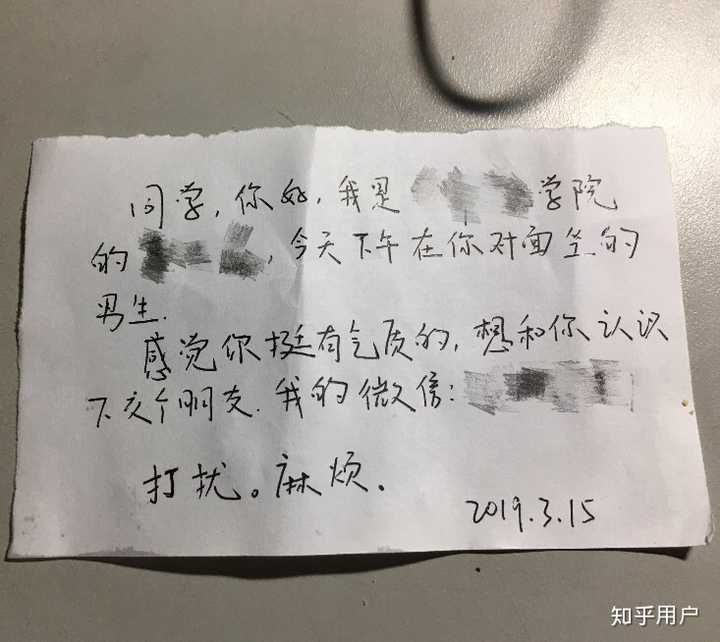 同学,你好,我是学院
的,今天下午在你对面坐的
男生.
感觉你挺有气质的,想和你认识
下交个朋友.我的微信:
打扰。麻烦.
2019.3.15
知乎用户